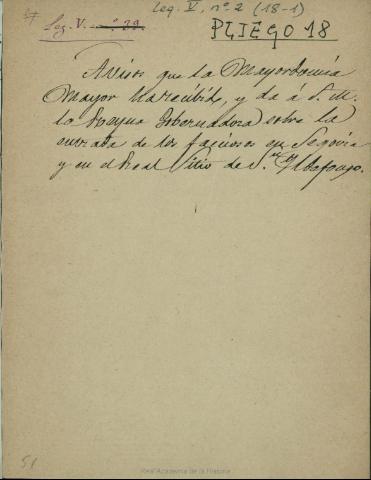 Leg. V, nº 2 (18-1)
Leg. V. nº 29.
PLIEGO 18
Avisos que la Mayordomia
Mayor ha recibido, y da á S. M.
la Reyna Gobernadora sobre la
entrada de los facciosos en Segovia
y en el Real Sitio de S.n Ildefonso.
51
Real Academia de la Historia